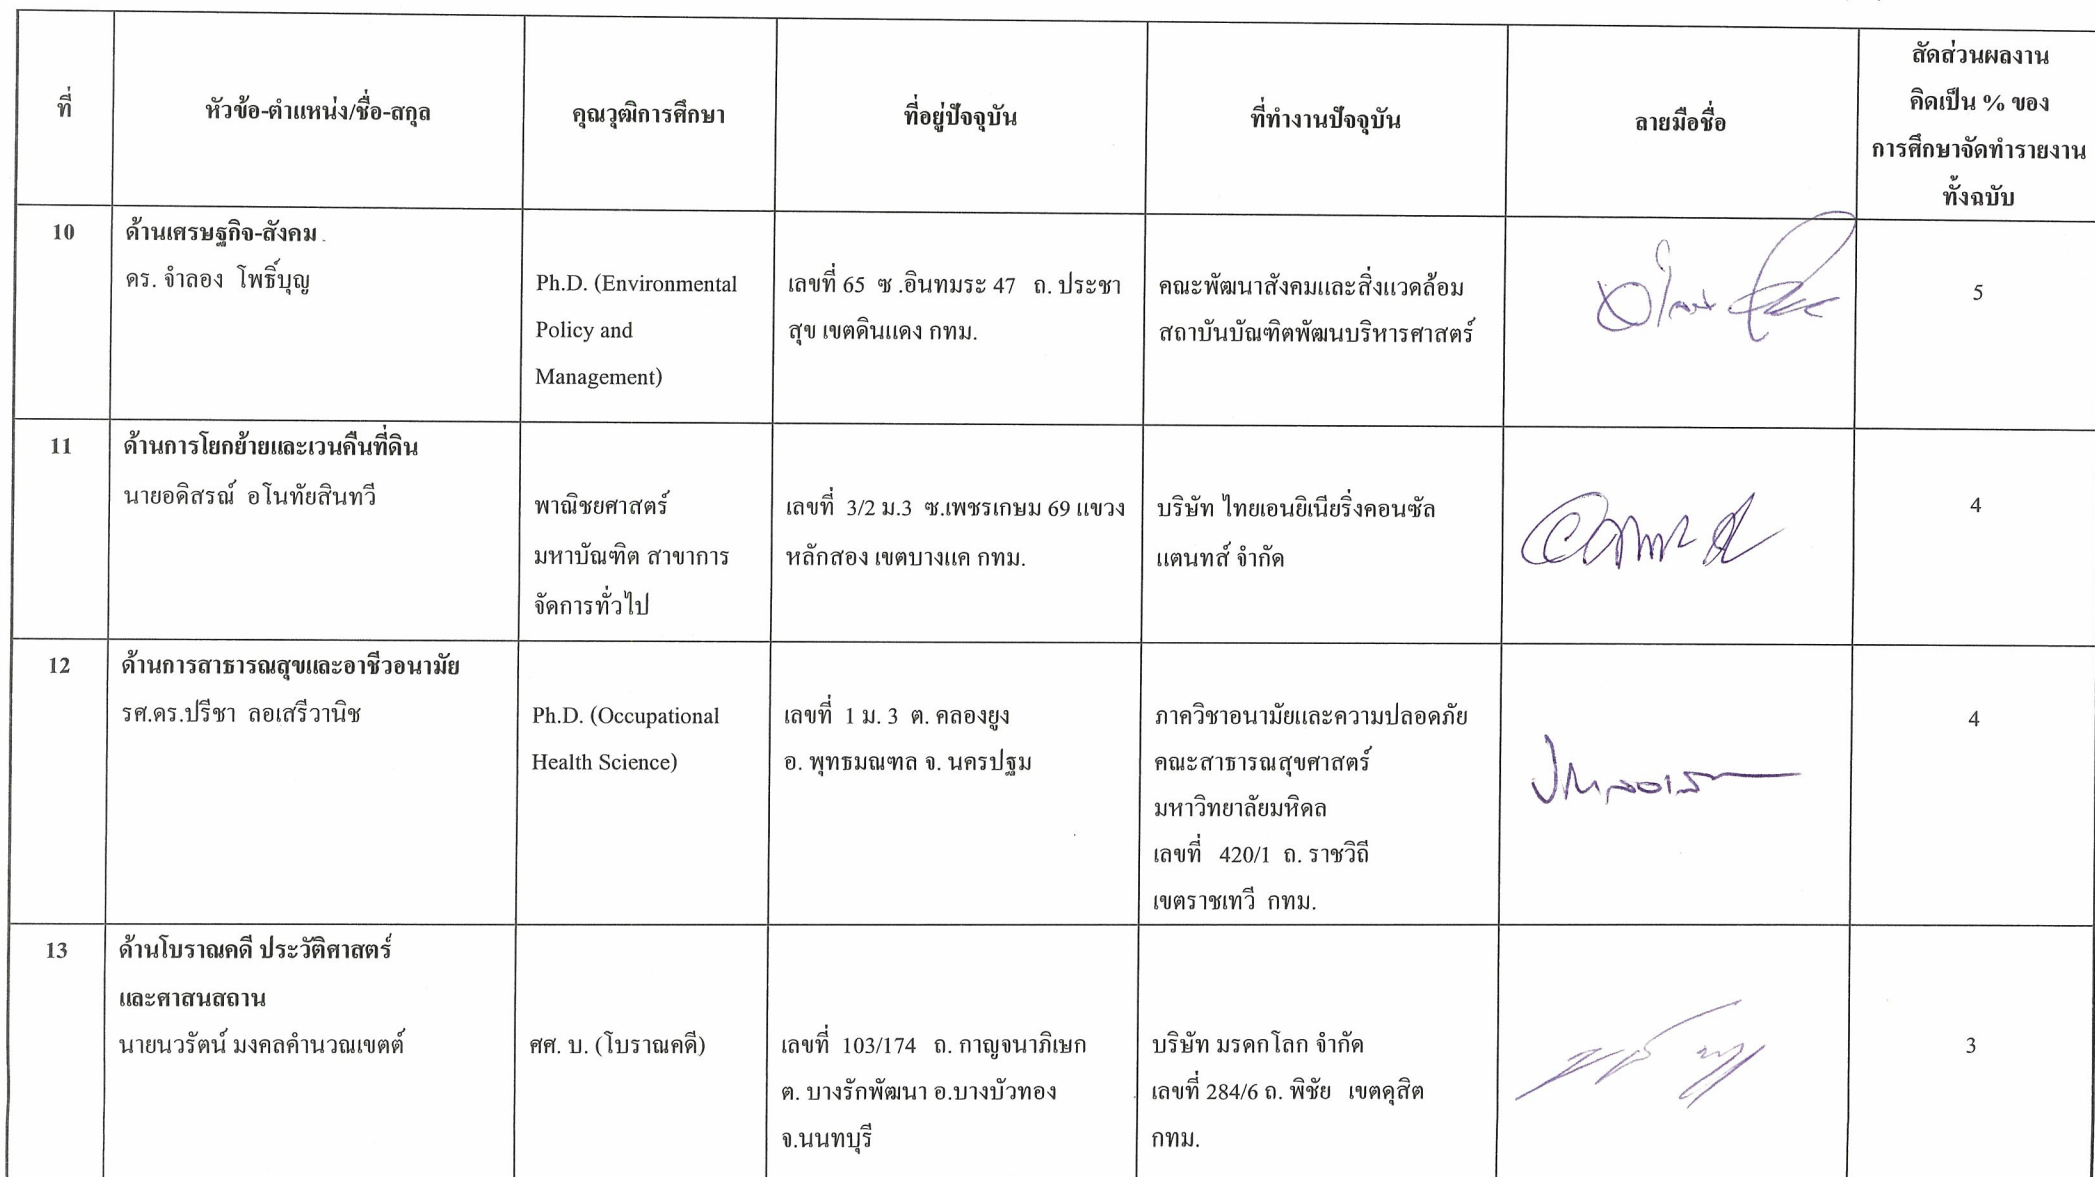 ที่
หัวข้อ-ตำแหน่ง/ชื่อ-สกุล
คุณวุฒิการศึกษา
ที่อยู่ปัจจุบัน
ที่ทำงานปัจจุบัน
ลายมือชื่อ
สัดส่วนผลงาน
คิดเป็น % ของ
การศึกษาจัดทำรายงาน
ทั้งฉบับ
10
ด้านเศรษฐกิจ-สังคม
ดร. จำลอง โพธิ์บุญ
Ph.D. (Environmental
Policy and
Management)
เลขที่ 65 ซ .อินทมระ 47 ถ. ประชา
สุข เขตดินแดง กทม.
คณะพัฒนาสังคมและสิ่งแวดล้อม
สถาบันบัณฑิตพัฒนบริหารศาสตร์
5
11
ด้านการโยกย้ายและเวนคืนที่ดิน
นายอดิสรณ์ อโนทัยสินทวี
พาณิชยศาสตร์
มหาบัณฑิต สาขาการ
จัดการทั่วไป
เลขที่ 3/2 ม.3 ซ.เพชรเกษม 69 แขวง
หลักสอง เขตบางแค กทม.
บริษัท ไทยเอนยิเนียริ่งคอนซัล
แตนทส์ จำกัด
4
12
ด้านการสาธารณสุขและอาชีวอนามัย
รศ.ดร.ปรีชา ลอเสรีวานิช
Ph.D. (Occupational
Health Science)
เลขที่ 1 ม. 3 ต. คลองยูง
อ. พุทธมณฑล จ. นครปฐม
ภาควิชาอนามัยและความปลอดภัย
คณะสาธารณสุขศาสตร์
มหาวิทยาลัยมหิดล
เลขที่ 420/1 ถ. ราชวิถี
เขตราชเทวี กทม.
4
13
ด้านโบราณคดี ประวัติศาสตร์
และศาสนสถาน
นายนวรัตน์ มงคลคำนวณเขตต์
ศศ. บ. (โบราณคดี)
เลขที่ 103/174 ถ. กาญจนาภิเษก
ต. บางรักพัฒนา อ.บางบัวทอง
จ.นนทบุรี
บริษัท มรดกโลก จำกัด
เลขที่ 284/6 ถ. พิชัย เขตดุสิต
กทม.
3